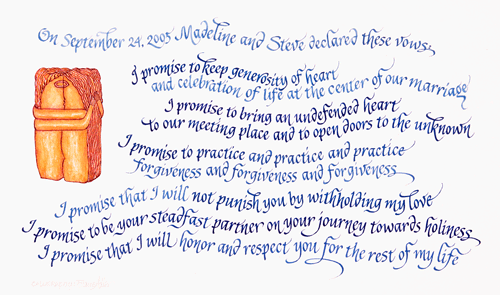 On September 24, 2005 Madeline and Steve declared these vows,
I promise to keep generosity of heart
and celebration of life at the center of our marriage
I promise to bring an undefended heart
to our meeting place and to open doors to the unknown
I promise to practice and practice and practice
forgiveness and forgiveness and forgiveness
I promise that I will not punish you by withholding my love
I promise to be your steadfast partner on your journey towards holiness
I promise that I will honor and respect you for the rest of my life